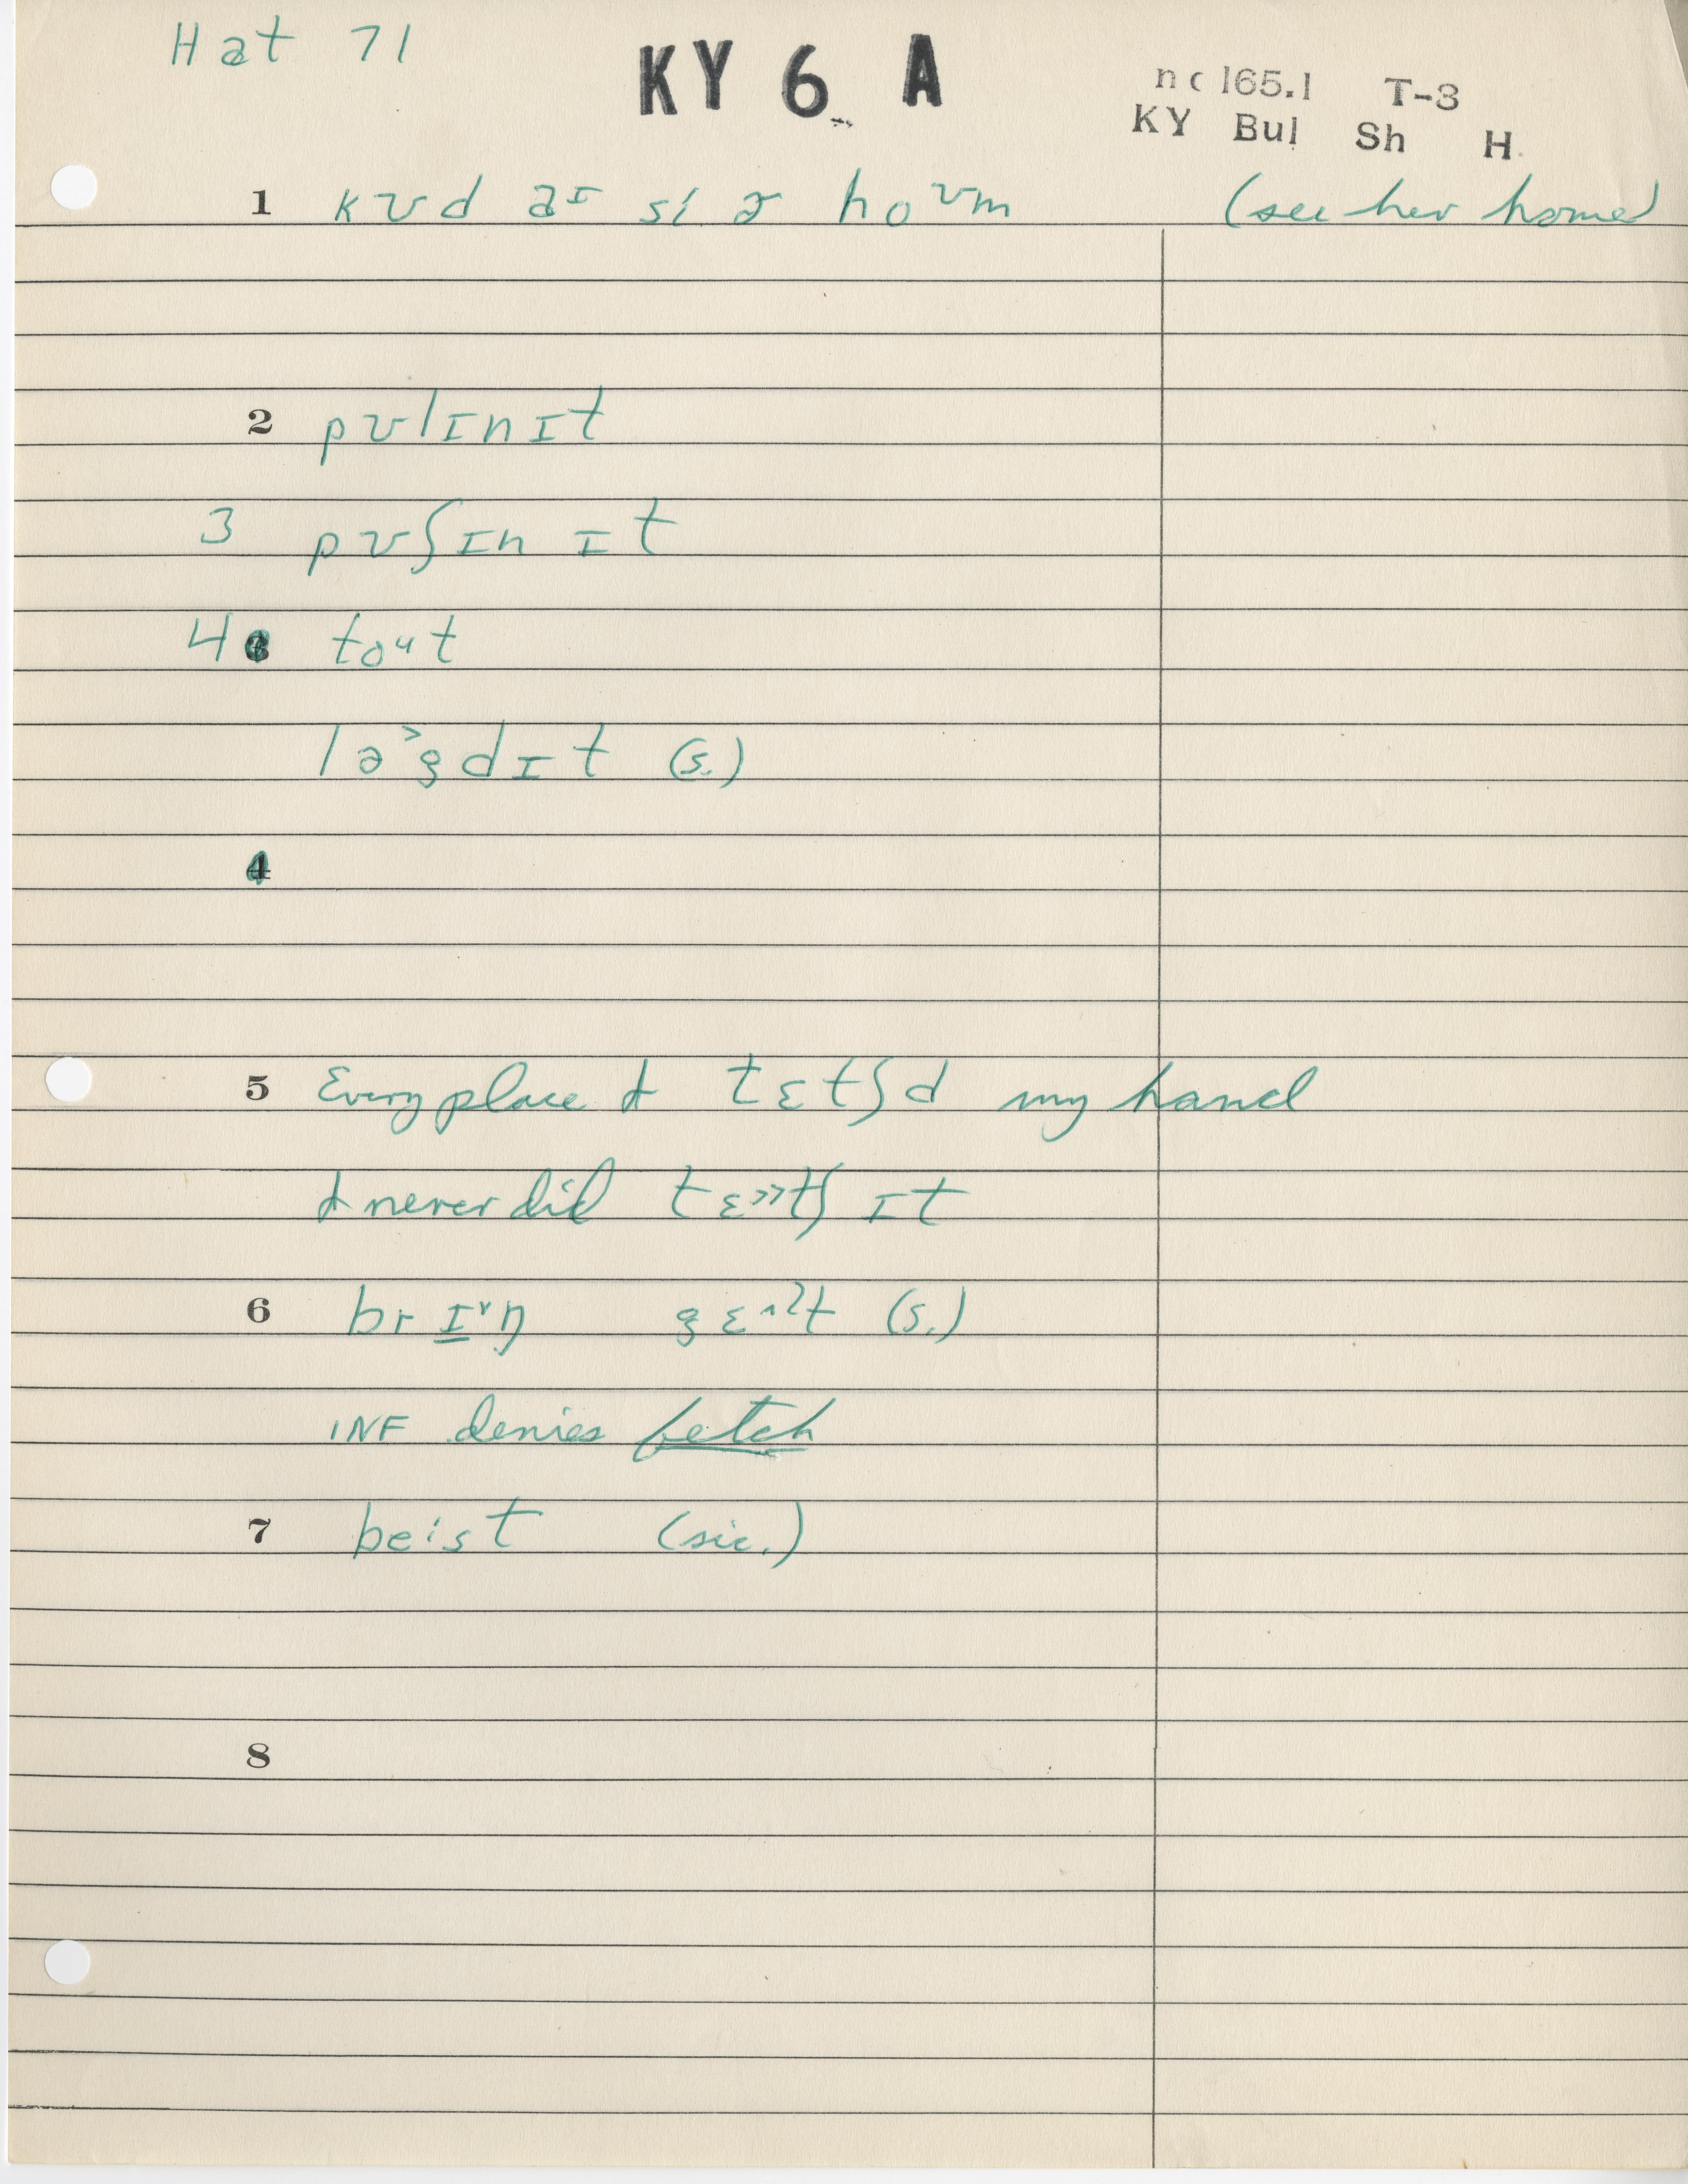 Hat 71
KY 6 A
nc 165.1 T-3
KY Bul Sh H
1 kʊd aɪ si ɚ hoʊm (see her home)
2 pʊlɪnɪt
3 pʊʃɪn ɪt
4 3 toᵘt
la˃gdɪt (s.)
4
5 Every place I tɛtʃd my hand
I never did tɛ˃˃tʃ ɪt
6 brɪ˅ŋ gɛ˄ʔt (s.)
INF denies fetch
7 beist (sic.)
8